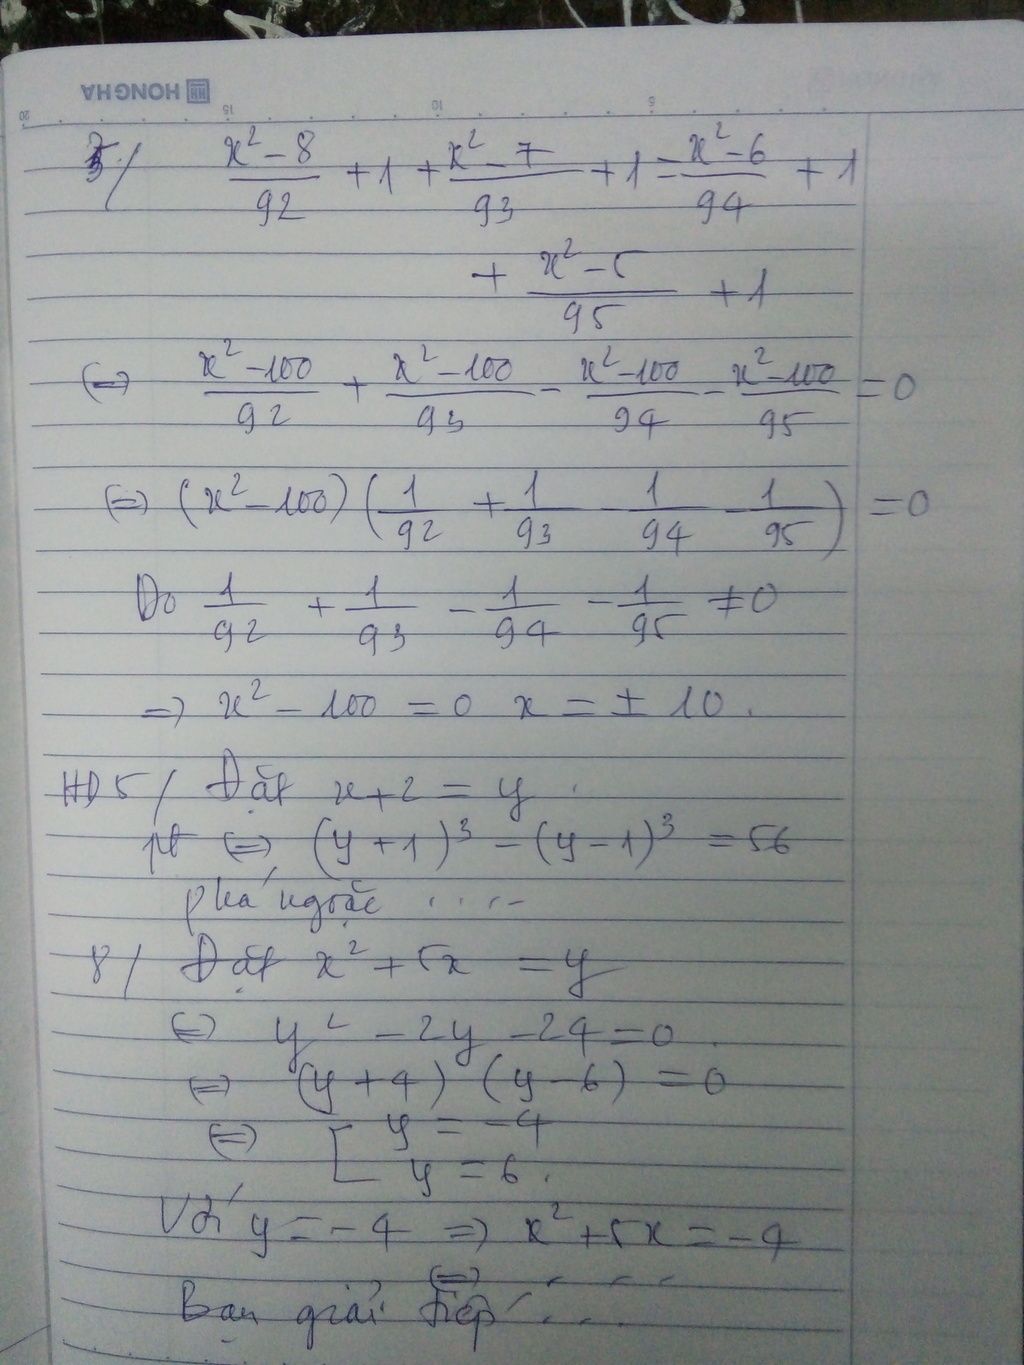 HONG HA
20 15 10 5
x² - 8 / 92 + 1 + x² - 7 / 93 + 1 = x² - 6 / 94 + 1
+ x² - 5 / 95 + 1
(=) x² - 100 / 92 + x² - 100 / 93 - x² - 100 / 94 - x² - 100 / 95 = 0
(=) (x² - 100) (1/92 + 1/93 - 1/94 - 1/95) = 0
Do 1/92 + 1/93 - 1/94 - 1/95 ≠ 0
=) x² - 100 = 0 x = ± 10.
HD 5/ Đặt x + 2 = y.
pt (=) (y + 1)³ - (y - 1)³ = 56
phá ngoặc ....
8/ Đặt x² + 5x = y
(=) y² - 2y - 24 = 0.
(=) (y + 4) (y - 6) = 0
(=) [ y = -4
y = 6.
Với y = -4 =) x² + 5x = -4
(=) . . . .
Bạn giải tiếp ....